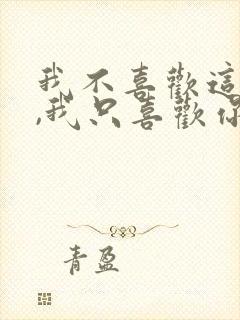 我不喜歡這
,我只喜歡你
青盈